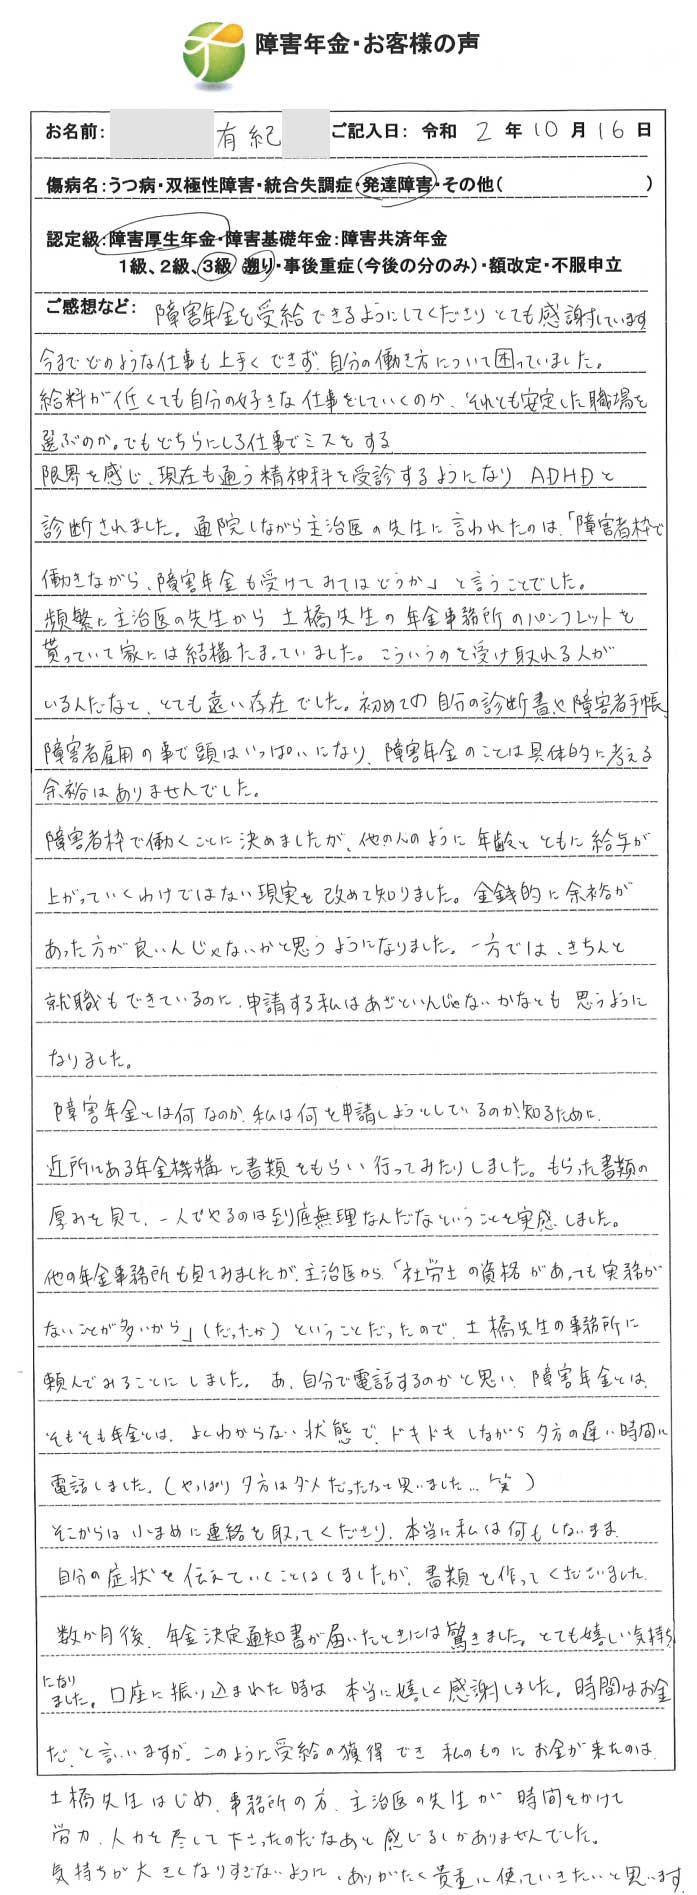 障害年金・お客様の声
お名前: 有紀 ご記入日: 令和 2 年 10 月 16 日
傷病名:うつ病・双極性障害・統合失調症・発達障害・その他( )
認定級:障害厚生年金・障害基礎年金:障害共済年金
1級、2級、3級 遡り・事後重症(今後の分のみ)・額改定・不服申立
ご感想など: 障害年金を受給できるようにしてくださりとても感謝しています
今までどのような仕事も上手くできず、自分の働き方について困っていました。
給料が低くても自分の好きな仕事をしていくのか、それとも安定した職場を
選ぶのか。でもどちらにしろ仕事でミスをする
限界を感じ、現在も通う精神科を受診するようになりADHDと
診断されました。通院しながら主治医の先生に言われたのは、「障害者枠で
働きながら、障害年金も受けてみてはどうか」と言うことでした。
頻繁に主治医の先生から土橋先生の年金事務所のパンフレットを
貰っていて家には結構たまっていました。こういうのを受け取れる人が
いるんだなと、とても遠い存在でした。初めての自分の診断書や障害者手帳、
障害者雇用の事で頭はいっぱいになり、障害年金のことは具体的に考える
余裕はありませんでした。
障害者枠で働くことに決めましたが、他の人のように年齢とともに給与が
上がっていくわけではない現実を改めて知りました。金銭的に余裕が
あった方が良いんじゃないかと思うようになりました。一方では、きちんと
就職もできているのに、申請する私はあざといんじゃないかなとも思うように
なりました。
障害年金とは何なのか、私は何を申請しようとしているのか知るために、
近所にある年金機構に書類をもらい行ってみたりしました。もらった書類の
厚みを見て、一人でやるのは到底無理なんだなということを実感しました。
他の年金事務所も見てみましたが、主治医から「社労士の資格があっても実務が
ないことが多いから」(だったか)ということだったので、土橋先生の事務所に
頼んでみることにしました。あ、自分で電話するのかと思い、障害年金とは、
そもそも年金とは、よくわからない状態で、ドキドキしながら夕方の遅い時間に
電話しました。(やっぱり夕方はダメだったなって思いました…笑)
そこからは小まめに連絡を取ってくださり、本当に私は何もしないまま、
自分の症状を伝えていくことはしましたが、書類を作ってくださいました。
数か月後、年金決定通知書が届いたときには驚きました。とても嬉しい気持ち
になりました。口座に振り込まれた時は本当に嬉しく感謝しました。時間はお金
だ、と言いますが、このように受給の獲得でき私のものにお金が来たのは、
土橋先生はじめ、事務所の方、主治医の先生が時間をかけて
労力、人力を尽して下さったのだなあと感じるしかありませんでした。
気持ちが大きくなりすぎないように、ありがたく貴重に使っていきたいと思います。